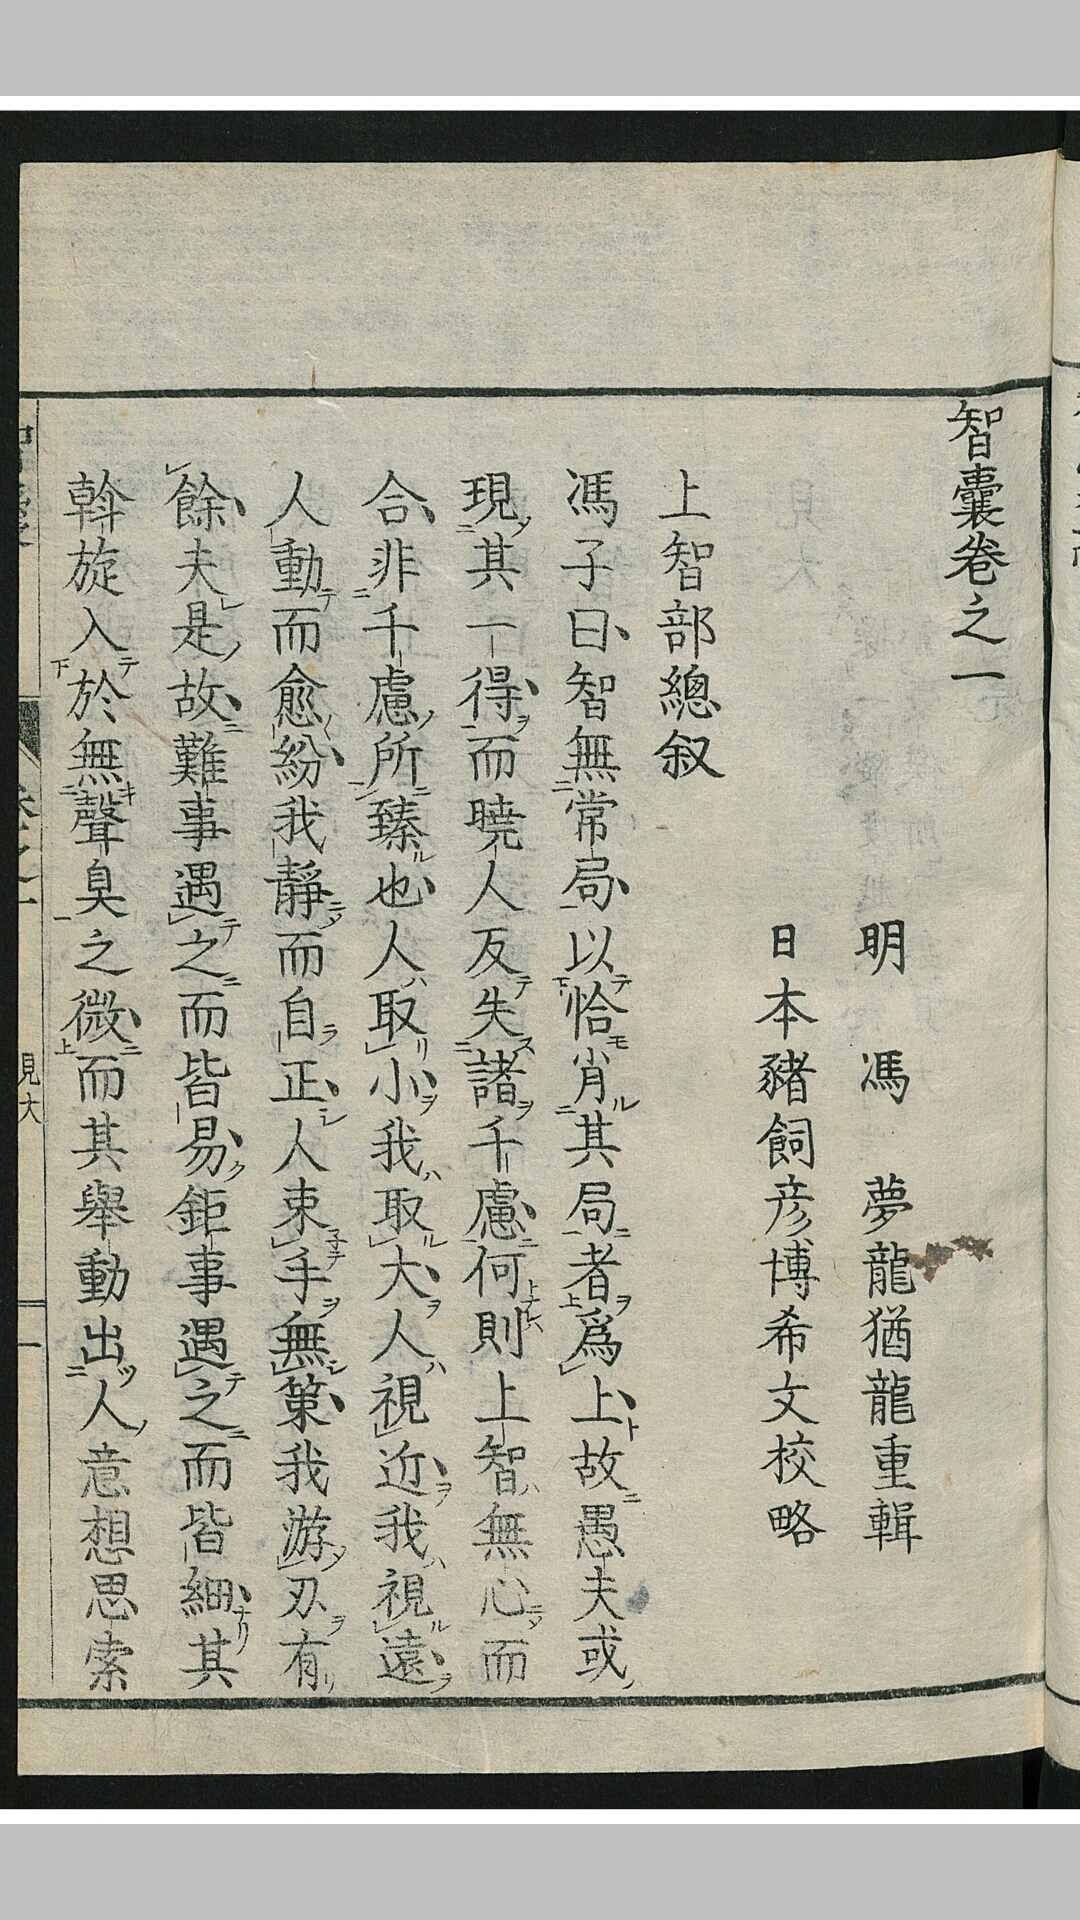 智囊卷之一
明　馮　夢龍猶龍重輯
日本豬飼彥博希文校略
上智部總叙
馮子曰智無常局以恰肖其局者爲上故愚夫或
現其一得而曉人反失諸千慮何則上智無心而
合非千慮所臻也人取小我取大人視近我視遠
人動而愈紛我靜而自正人束手無策我游刃有
餘夫是故難事遇之而皆易鉅事遇之而皆細其
斡旋入於無聲臭之微而其舉動出人意想思索
見大
一